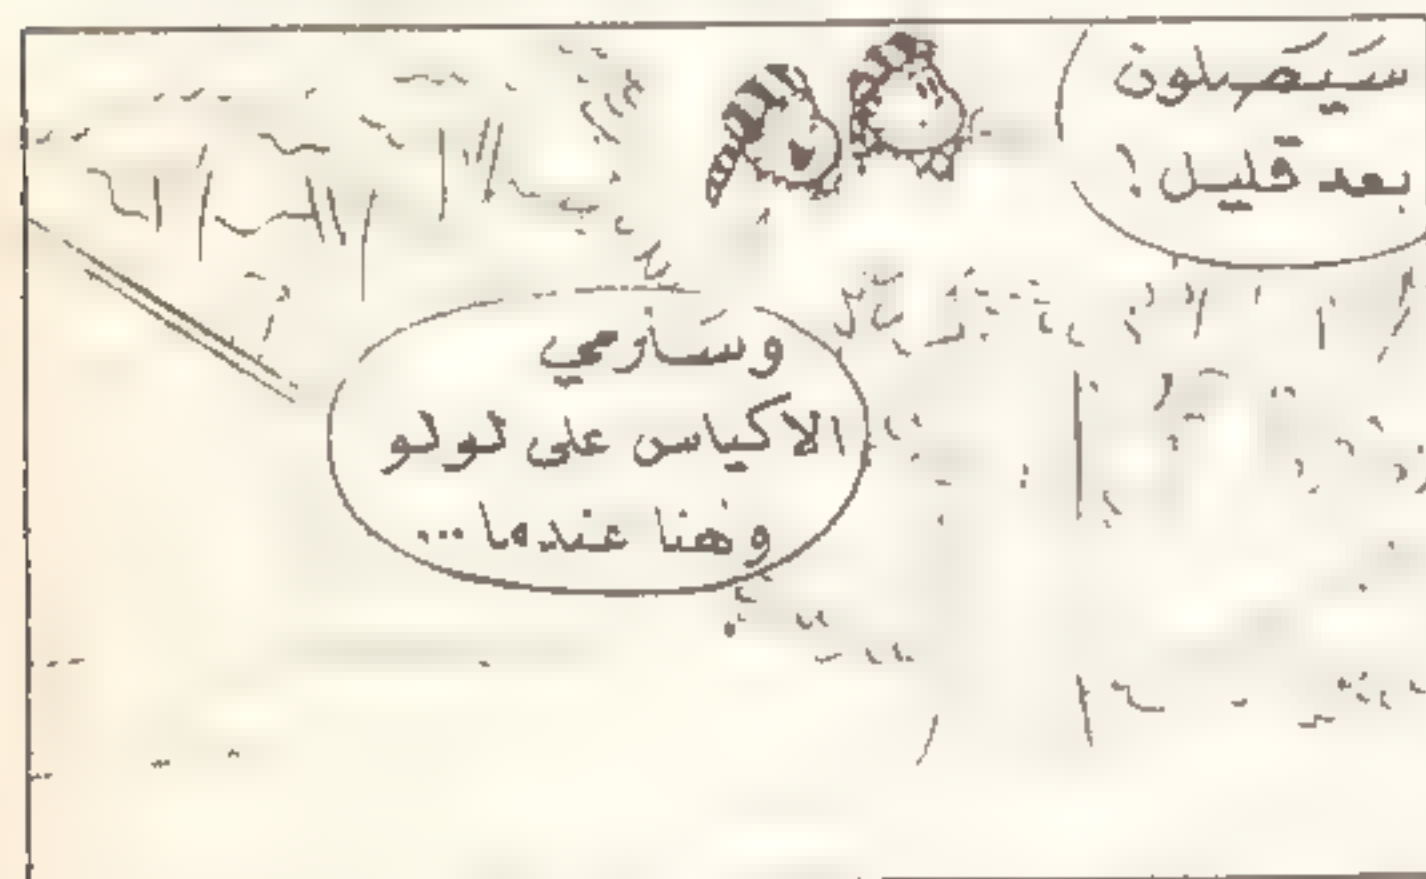 سَيَصلون
بعد قليل!
وسَنرمي
الاكياس على لولو
وهنا عندما ...